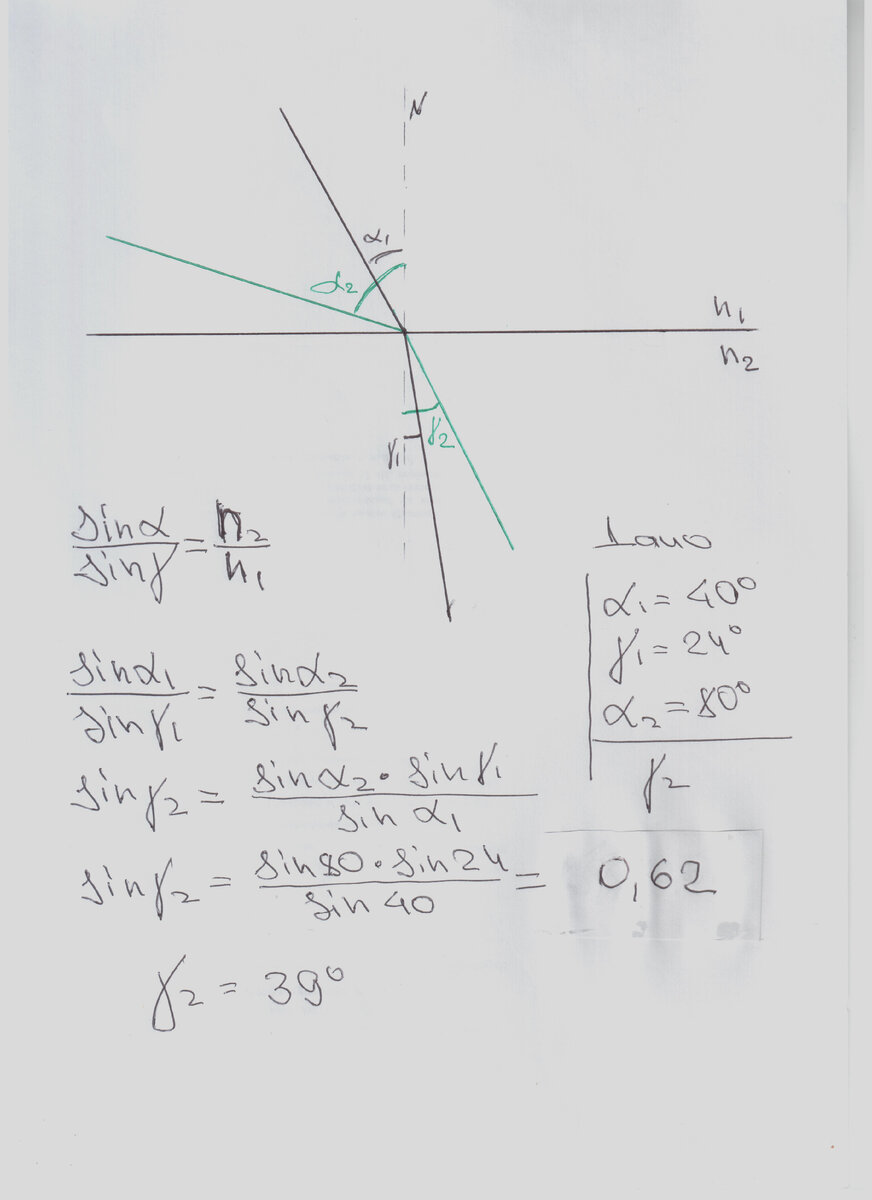 N
α₁
α₂
n₁
n₂
γ₁
γ₂
sinα/sinγ = n₂/n₁
Дано
α₁ = 40°
γ₁ = 24°
α₂ = 80°
γ₂
sinα₁/sinγ₁ = sinα₂/sinγ₂
sinγ₂ = sinα₂ · sinγ₁/sin α₁
sinγ₂ = sin80 · sin24/sin 40 = 0,62
γ₂ = 39°